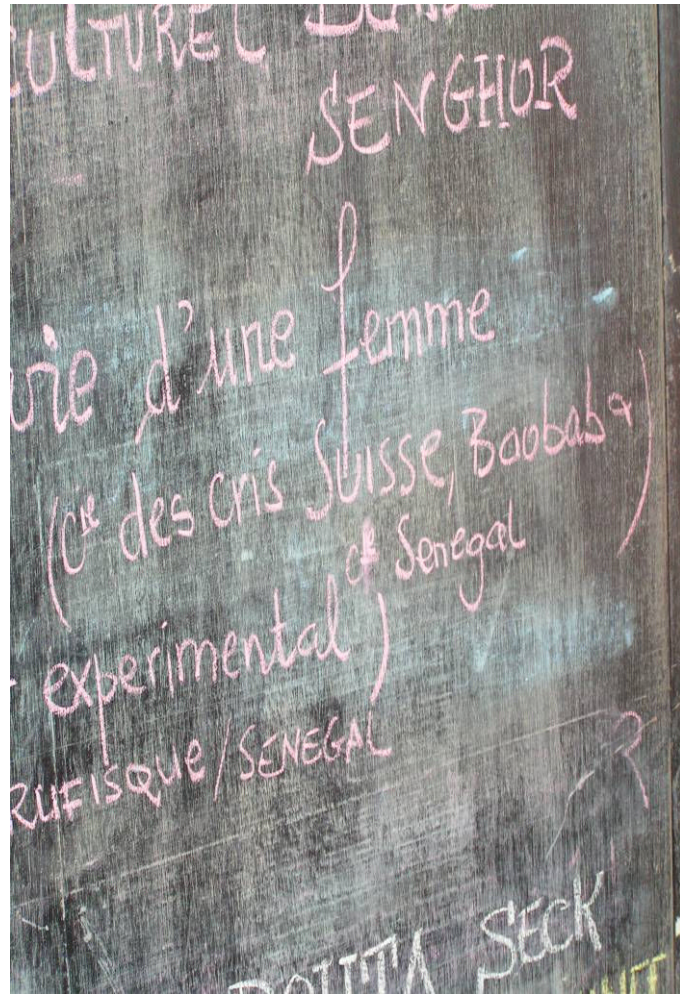 CULTUREL
SENGHOR
vie d'une femme
(Cie des cris Suisse, Baobab
Cie Senegal)
experimental)
RUFISQUE/SENEGAL
SECK